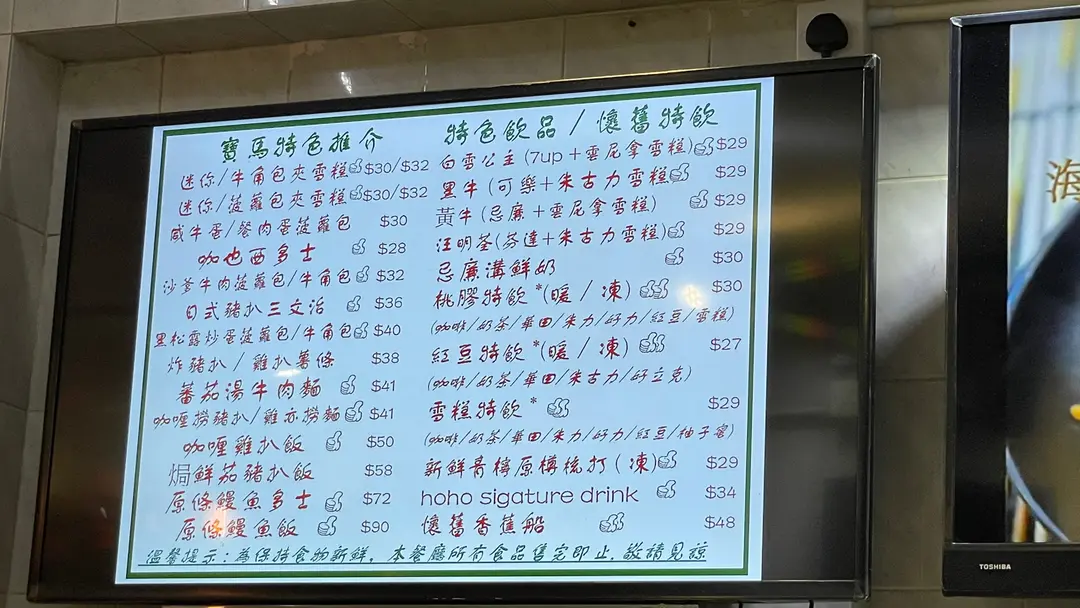 寶馬特色推介
迷你/牛角包夾雪糕 $30/$32
迷你/菠蘿包夾雪糕 $30/$32
咸牛蛋/餐肉蛋菠蘿包 $30
咖也西多士 $28
沙爹牛肉菠蘿包/牛角包 $32
日式豬扒三文治 $36
黑松露炒蛋菠蘿包/牛角包 $40
炸豬扒/雞扒薯條 $38
蕃茄湯牛肉麵 $41
咖喱撈豬扒/雞亦撈麵 $41
咖喱雞扒飯 $50
焗鮮茄豬扒飯 $58
原條鰻魚多士 $72
原條鰻魚飯 $90
特色飲品/懷舊特飲
白雪公主(7up+雲尼拿雪糕) $29
黑牛(可樂+朱古力雪糕) $29
黃牛(忌廉+雲尼拿雪糕) $29
汪明荃(芬達+朱古力雪糕) $29
忌廉溝鮮奶 $30
桃膠特飲*(暖/凍) $30
(咖啡/奶茶/華田/朱力/好力/紅豆/雪糕)
紅豆特飲*(暖/凍) $27
(咖啡/奶茶/華田/朱古力/好立克)
雪糕特飲* $29
(咖啡/奶茶/華田/朱力/好力/紅豆/柚子蜜)
新鮮青檸原樽梳打(凍) $29
hoho sigature drink $34
懷舊香蕉船 $48
溫馨提示:為保持食物新鮮,本餐廳所有食品售完即止,敬請見諒
海
TOSHIBA